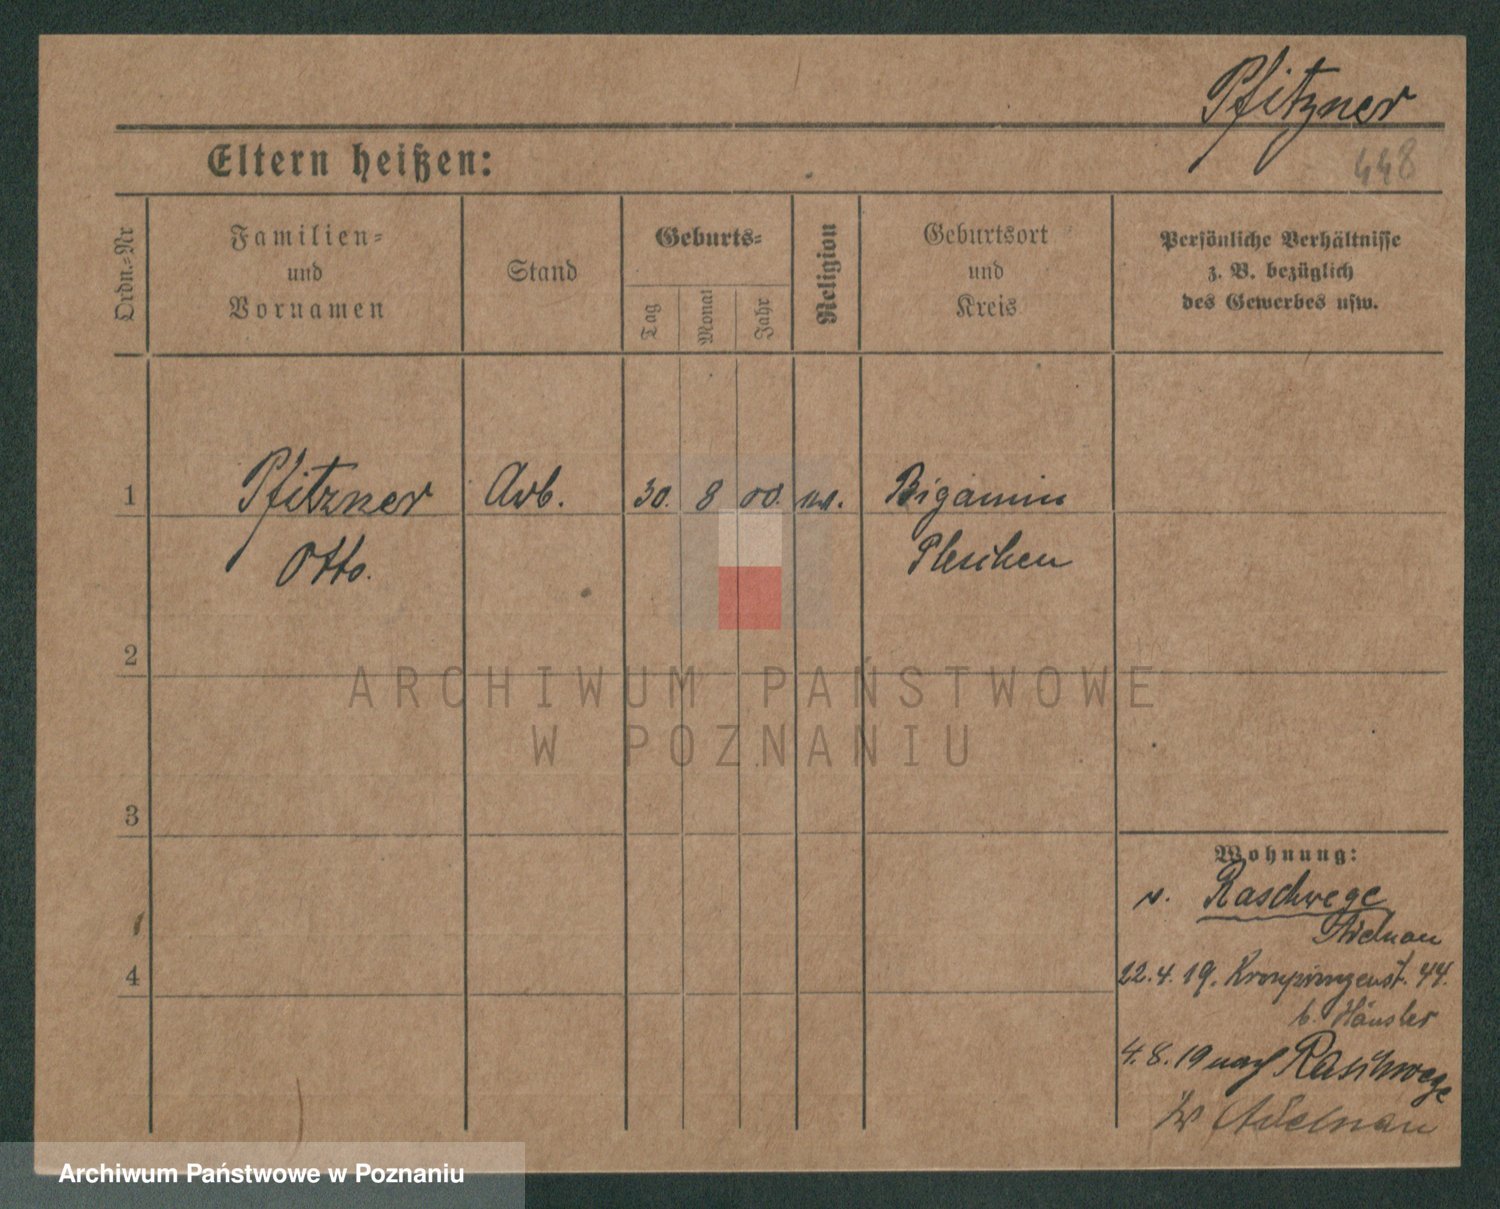 Pfitzner
448
Eltern heißen:
Ordn.=Nr
Familien=
und
Vornamen
Stand
Geburts=
Tag
Monat
Jahr
Religion
Geburtsort
und
Kreis
Persönliche Verhältnisse
z. B. bezüglich
des Gewerbes usw.
1
Pfitzner
Otto.
Arb.
30.
8
00.
Bigamin
Pleschen
2
3
4
Wohnung:
v. Raschwege
Adelnau
22.4.19. Kronprinzenst. 44.
b. Häusler
4.8.19 nach Raschwege
Adelnau
ARCHIWUM PAŃSTWOWE
W POZNANIU
Archiwum Państwowe w Poznaniu